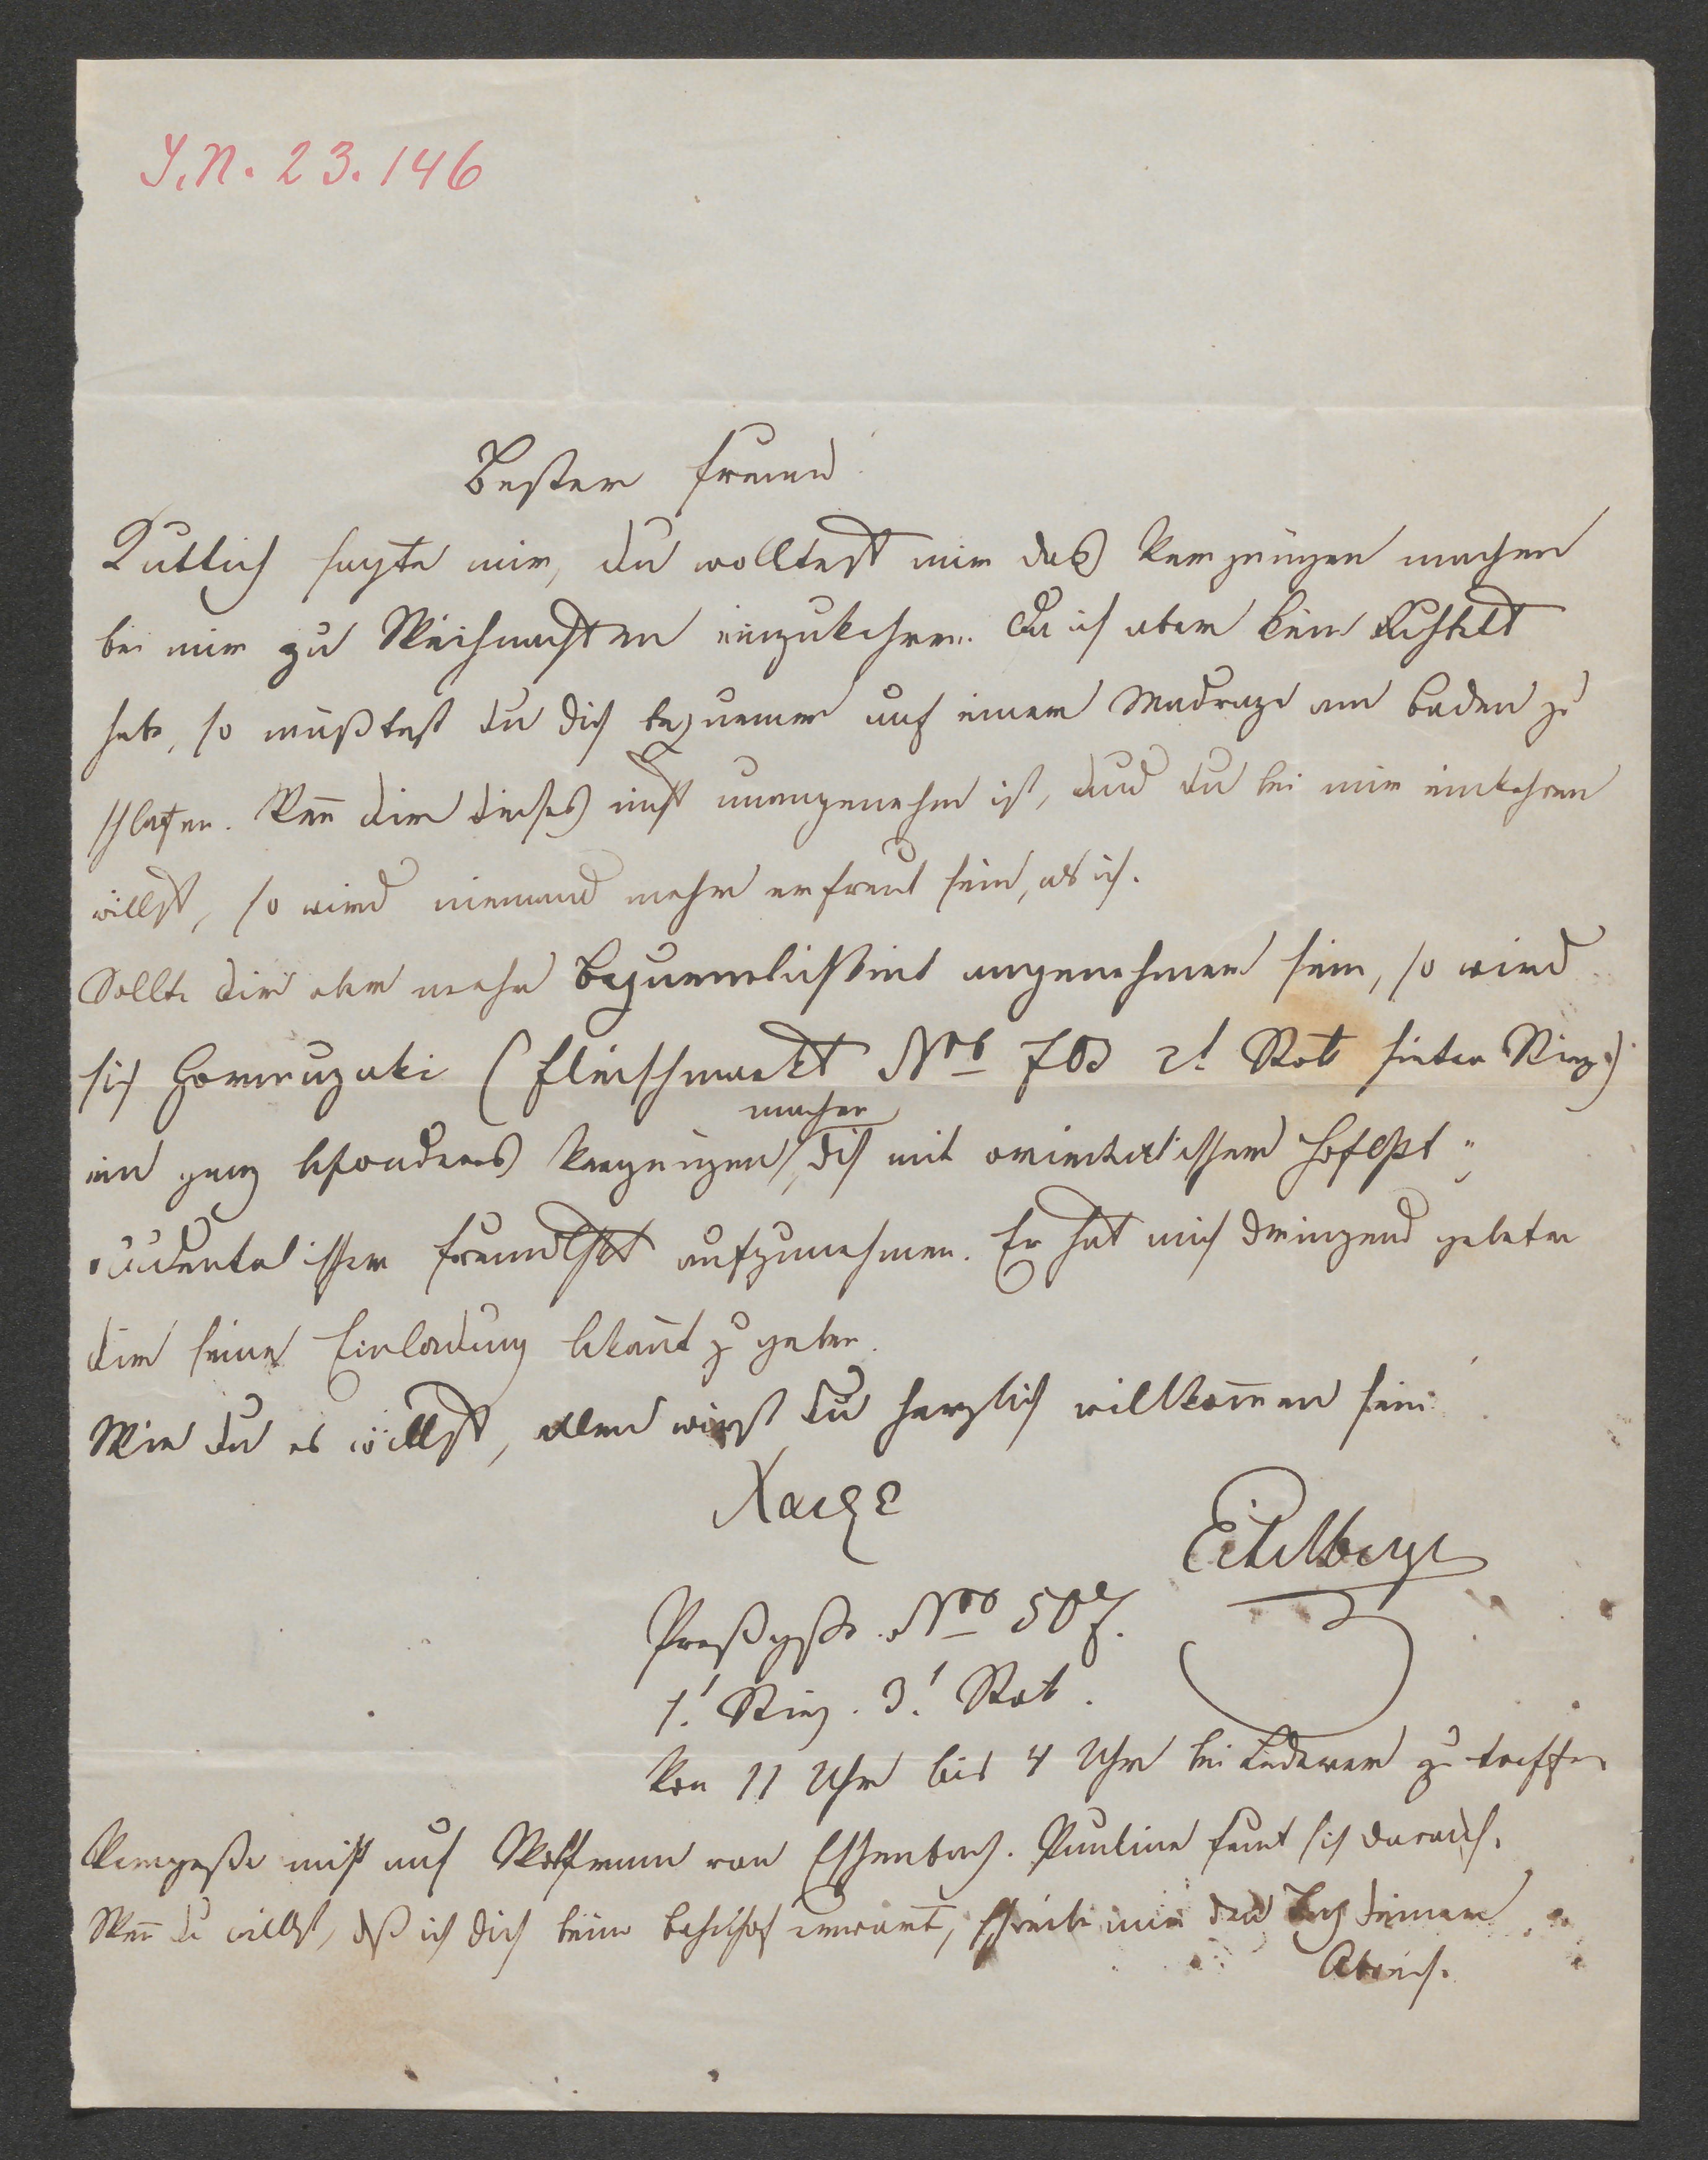 J.N. 23.146
Bester Freund
sagte mir, du wolltest mir das Vergnügen machen
bei mir zu Weihnachten einzukehren. Da ich aber kein
habe, so müßtest du dich bequemen auf einer Madraze am Boden zu
schlafen. Wen̄ dir dieses nicht unangenehm ist, und du bei mir einkehren
willst, so wird niemand mehr erfreut sein, als ich.
Sollte dir aber mehr Bequemlichkeit angenehmer sein, so wird
sich Hormuzaki (Fleischmarkt Nro 703 2t Stok hintere Stieg)
ein ganz besonderes Vergnügen machen, dich mit orientalischer Höflkt u
occidentalischer Freundlkt aufzunehmen. Er hat mich dringend gebeten
dir seine Einladung bekan̄t zu geben.
Wie du es willst, allen wirst du herzlich willkom̄en sein
Χαιρε
Eitelberger
Preßgsse Nro 507.
1t Stieg. 3t Stok.
Von 11 Uhr bis 4 Uhr bei Lederer zu treffen
Vergesse nicht auf Wolfram von Eschenbach. Pauline freut sich darauf.
Wen̄ du willst, daß ich dich beim Bahnhof erwarte, schreibe mir den Tag deiner
Abreise.